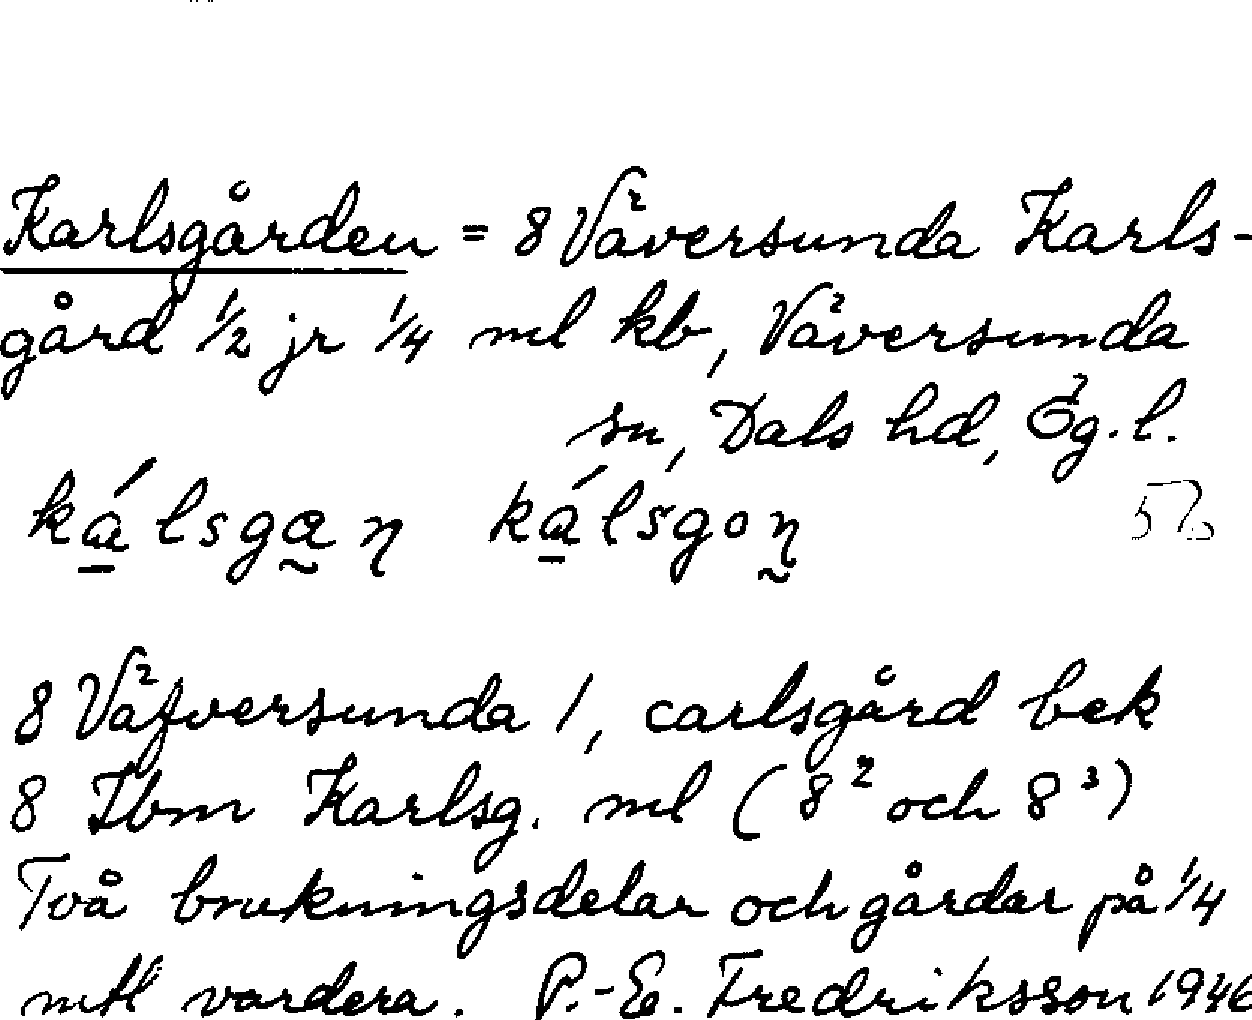 Karlsgården = 8 Väversunda Karls-
gård 1/2 jr 1/4 ml kb, Väversunda
sn, Dals hd, Ög. l.
kálsgan kálsgon
8 Väfversunda 1, carlsgård bek
8 Ibm Karlsg. ml (8² och 8³)
Två brukningsdelar och gårdar på 1/4
mtl vardera. P.-E. Fredriksson 1946